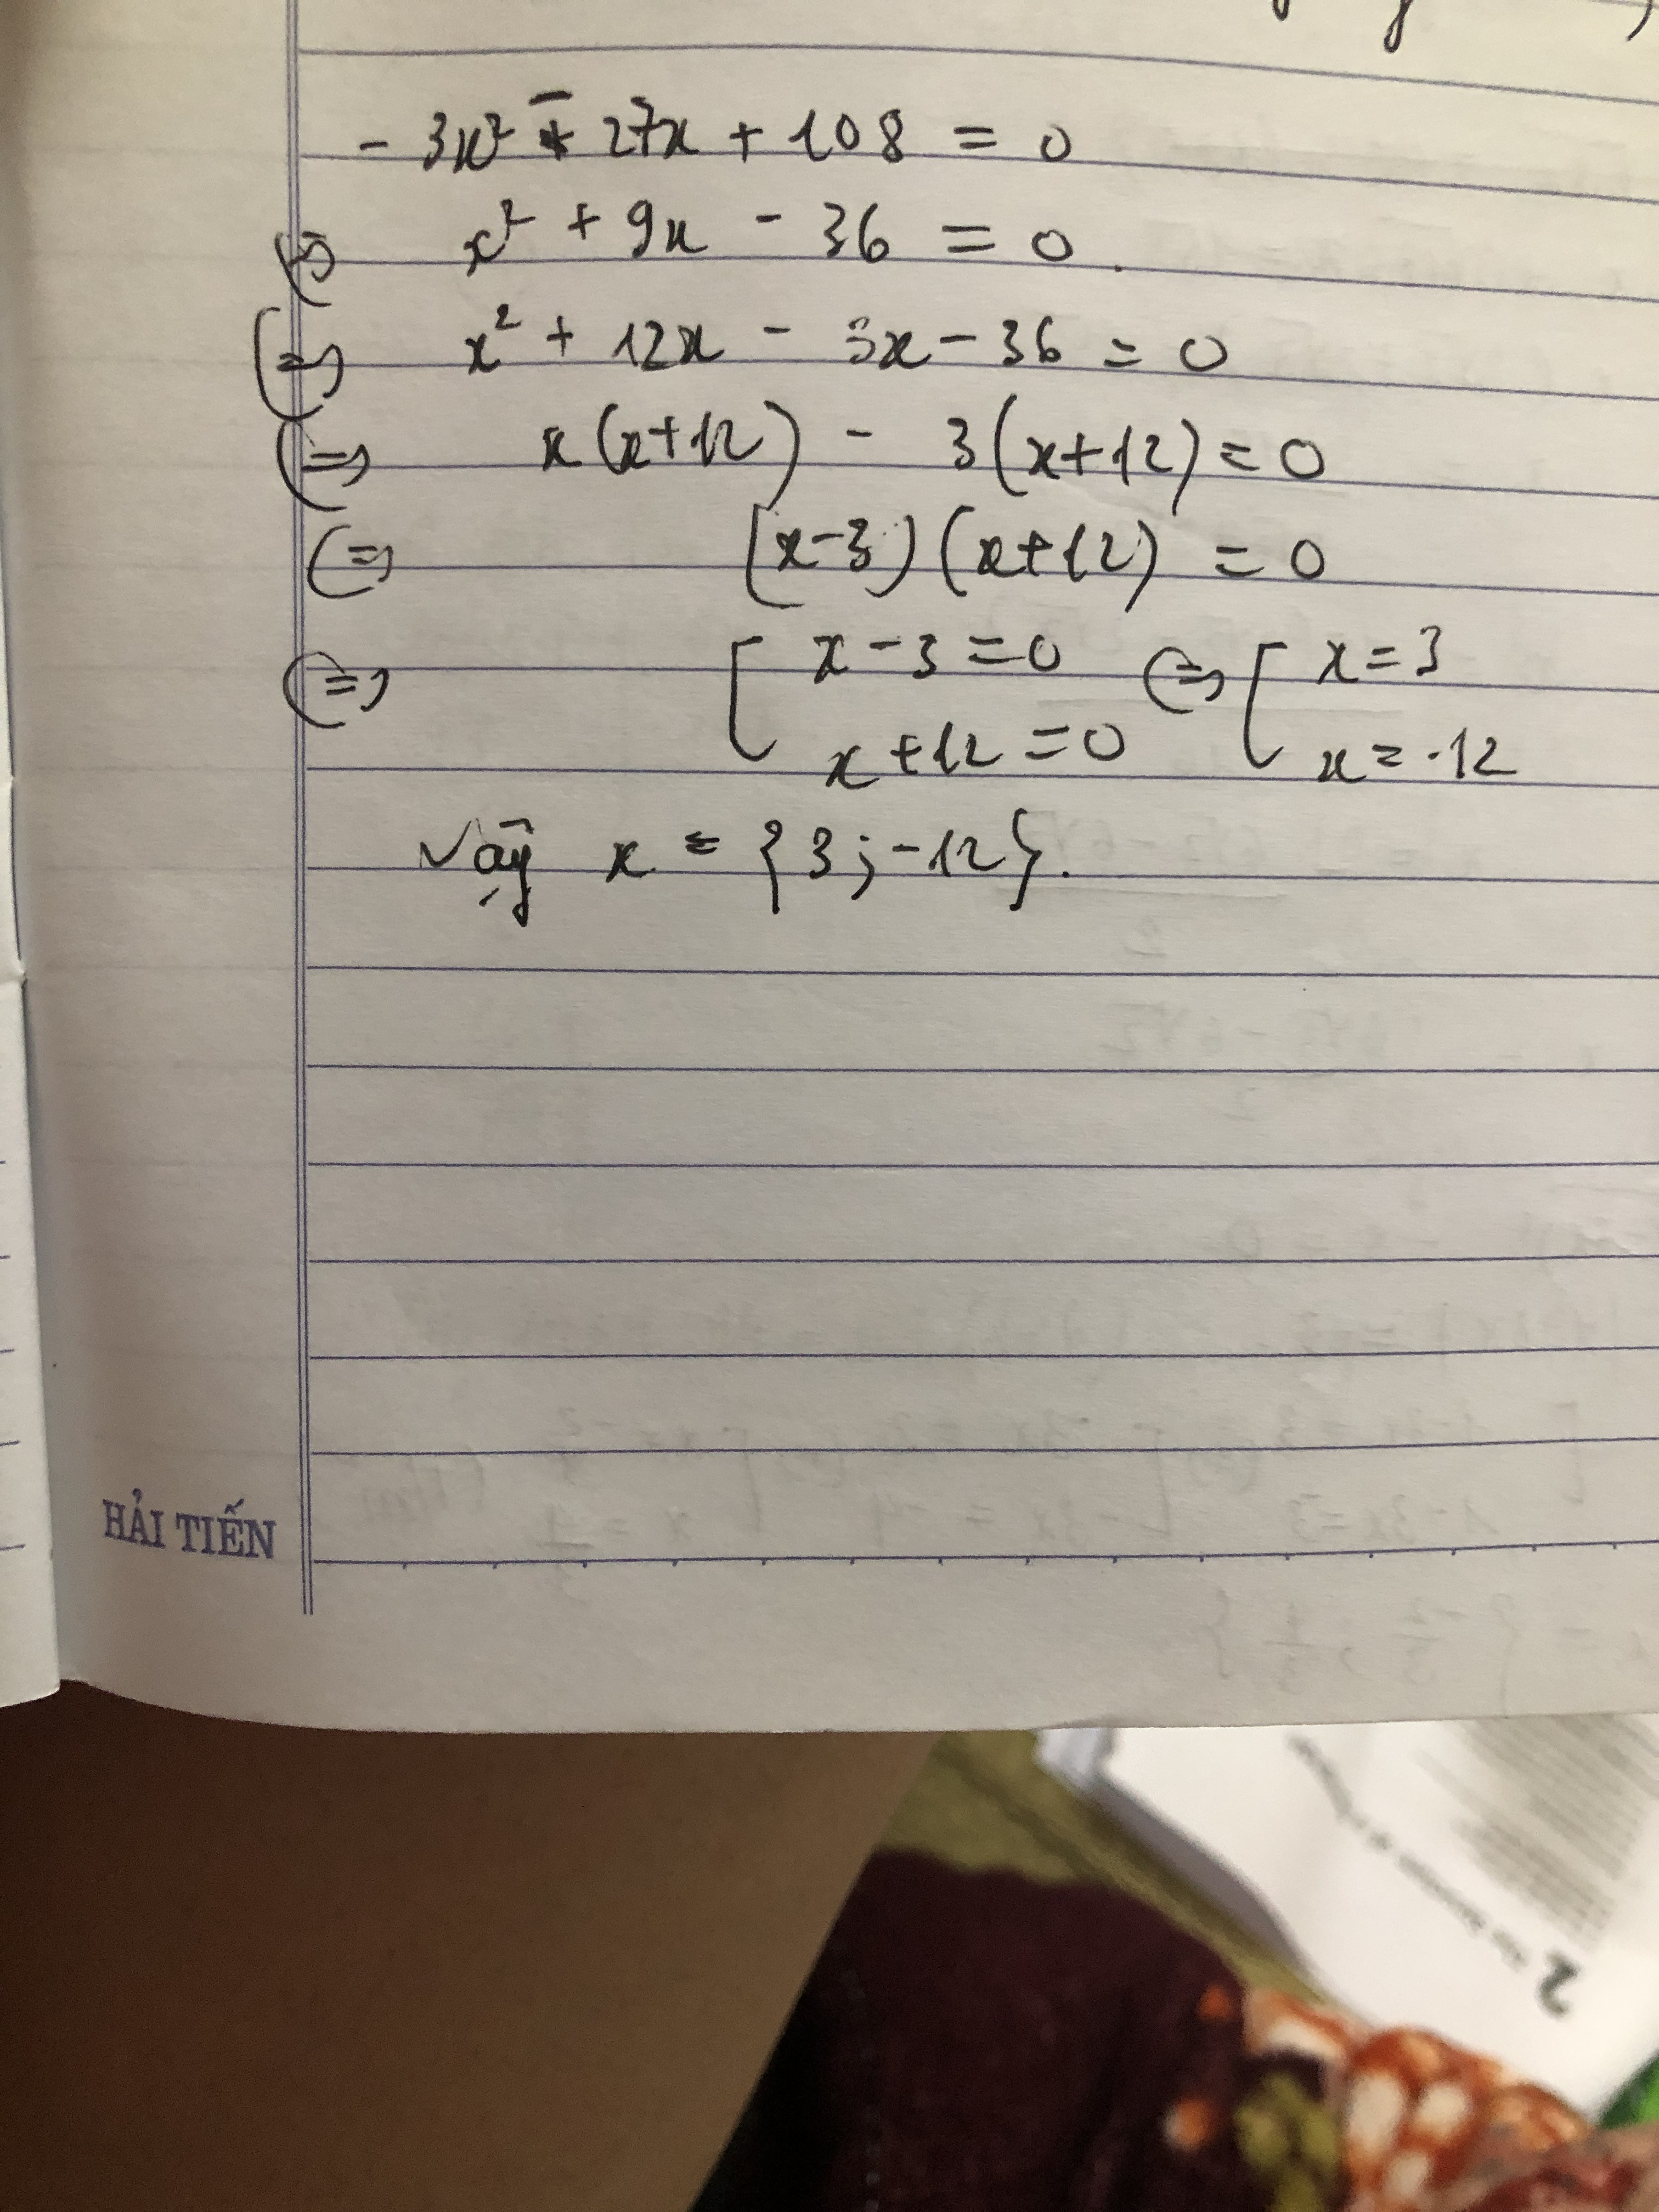 - 3x² - 27x + 108 = 0
(=) x² + 9x - 36 = 0.
(=) x² + 12x - 3x - 36 = 0
(=) x(x+12) - 3(x+12) = 0
(=) (x-3)(x+12) = 0
(=) [ x - 3 = 0 (=) [ x = 3
x + 12 = 0 x = -12
Vậy x = {3; -12}.
HẢI TIẾN
2